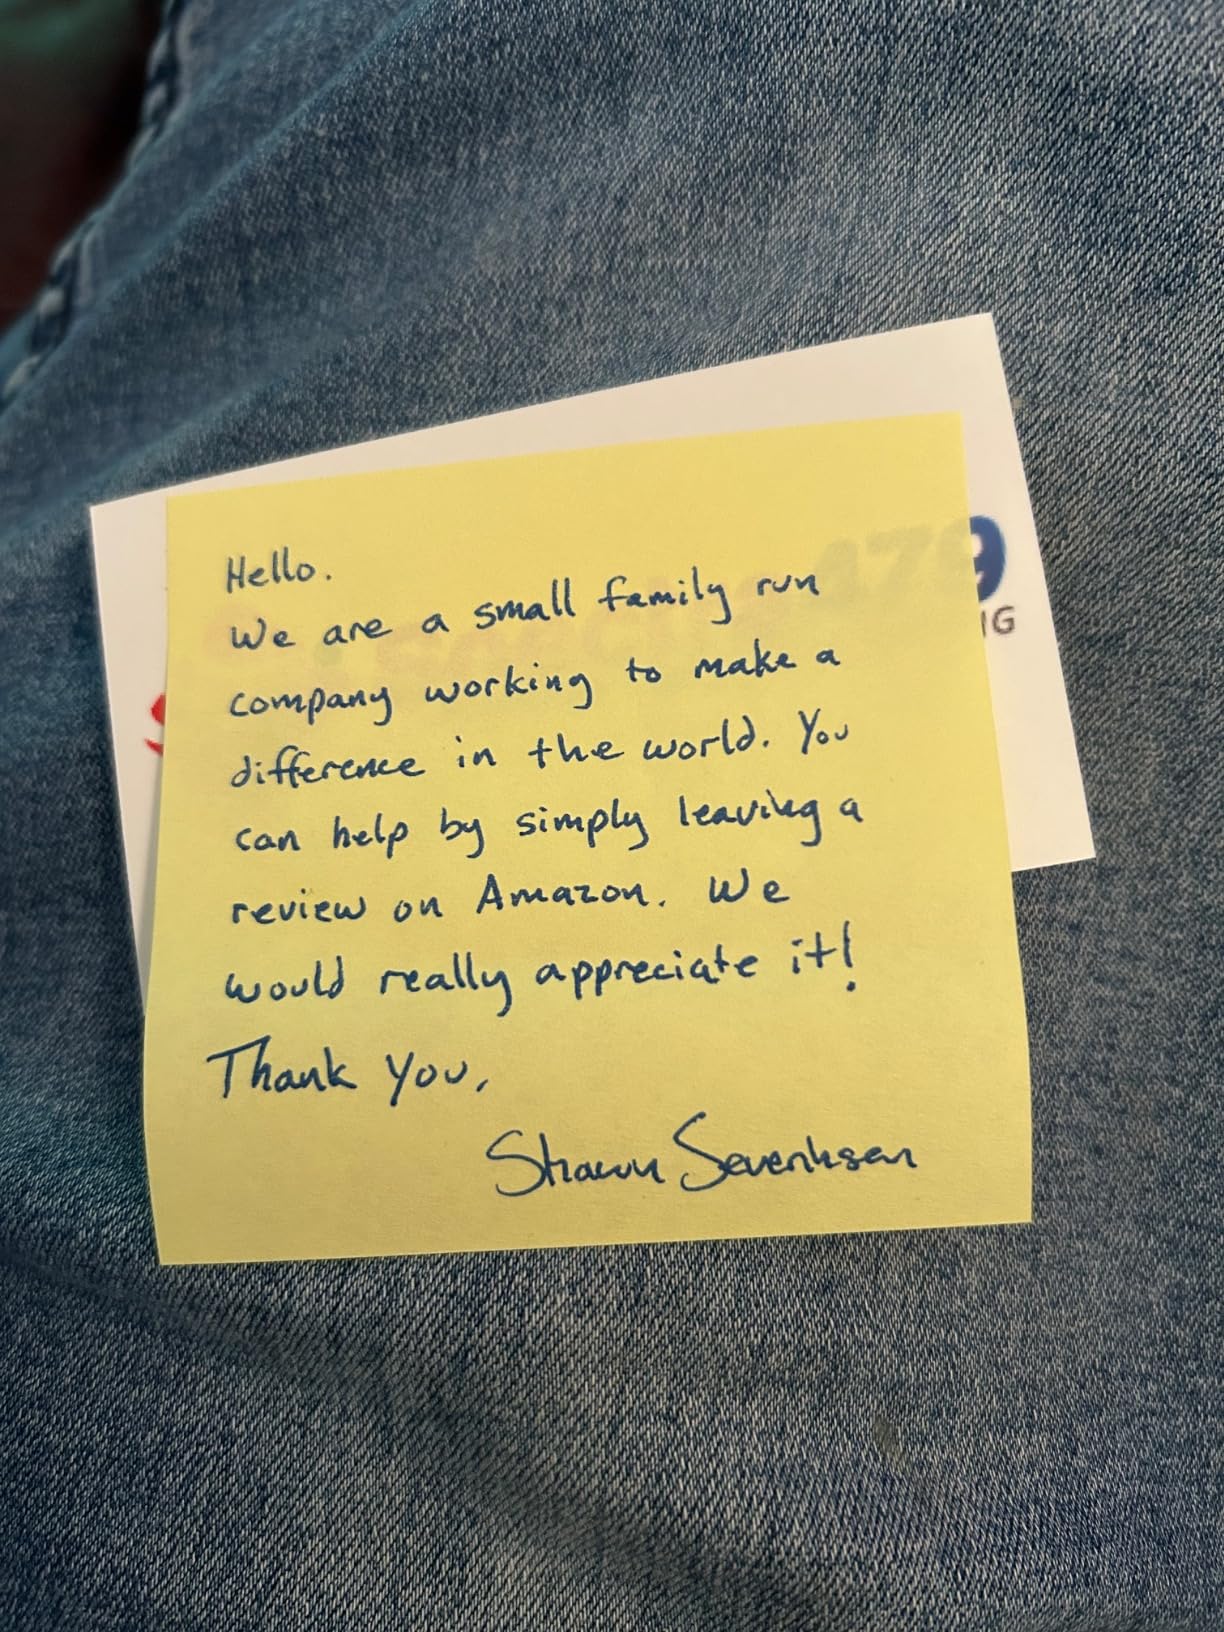 Hello.
We are a small family run
company working to make a
difference in the world. You
can help by simply leaving a
review on Amazon. We
would really appreciate it!
Thank you,
Shawn Sevenksen
479
S
IG